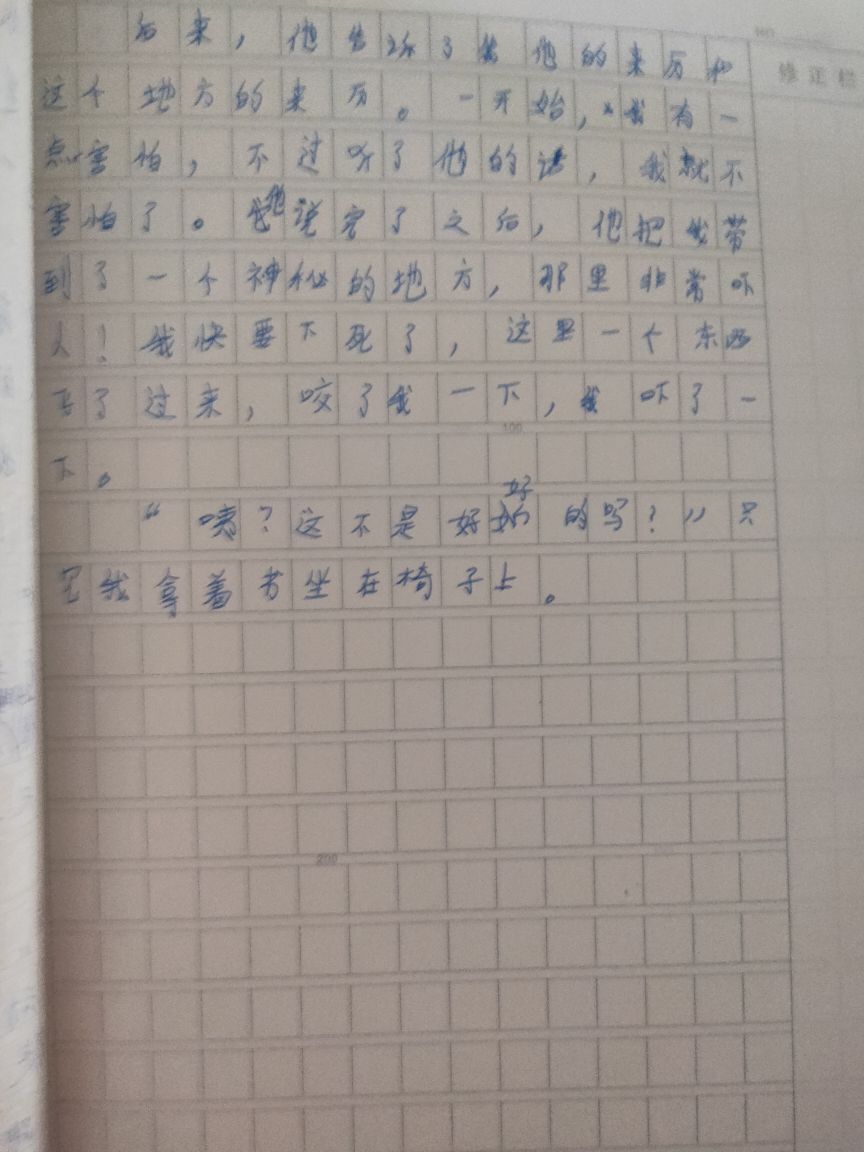 后来，他告诉了我他的来历和
这个地方的来历。一开始，我有一
点害怕，不过听了他的话，我就不
害怕了。他说完了之后，他把我带
到了一个神秘的地方，那里非常吓
人！我快要下死了，这里一个东西
飞了过来，咬了我一下，我吓了一
下。
“咦？这不是好好的吗？”只
见我拿着书坐在椅子上。
修正栏
100
200